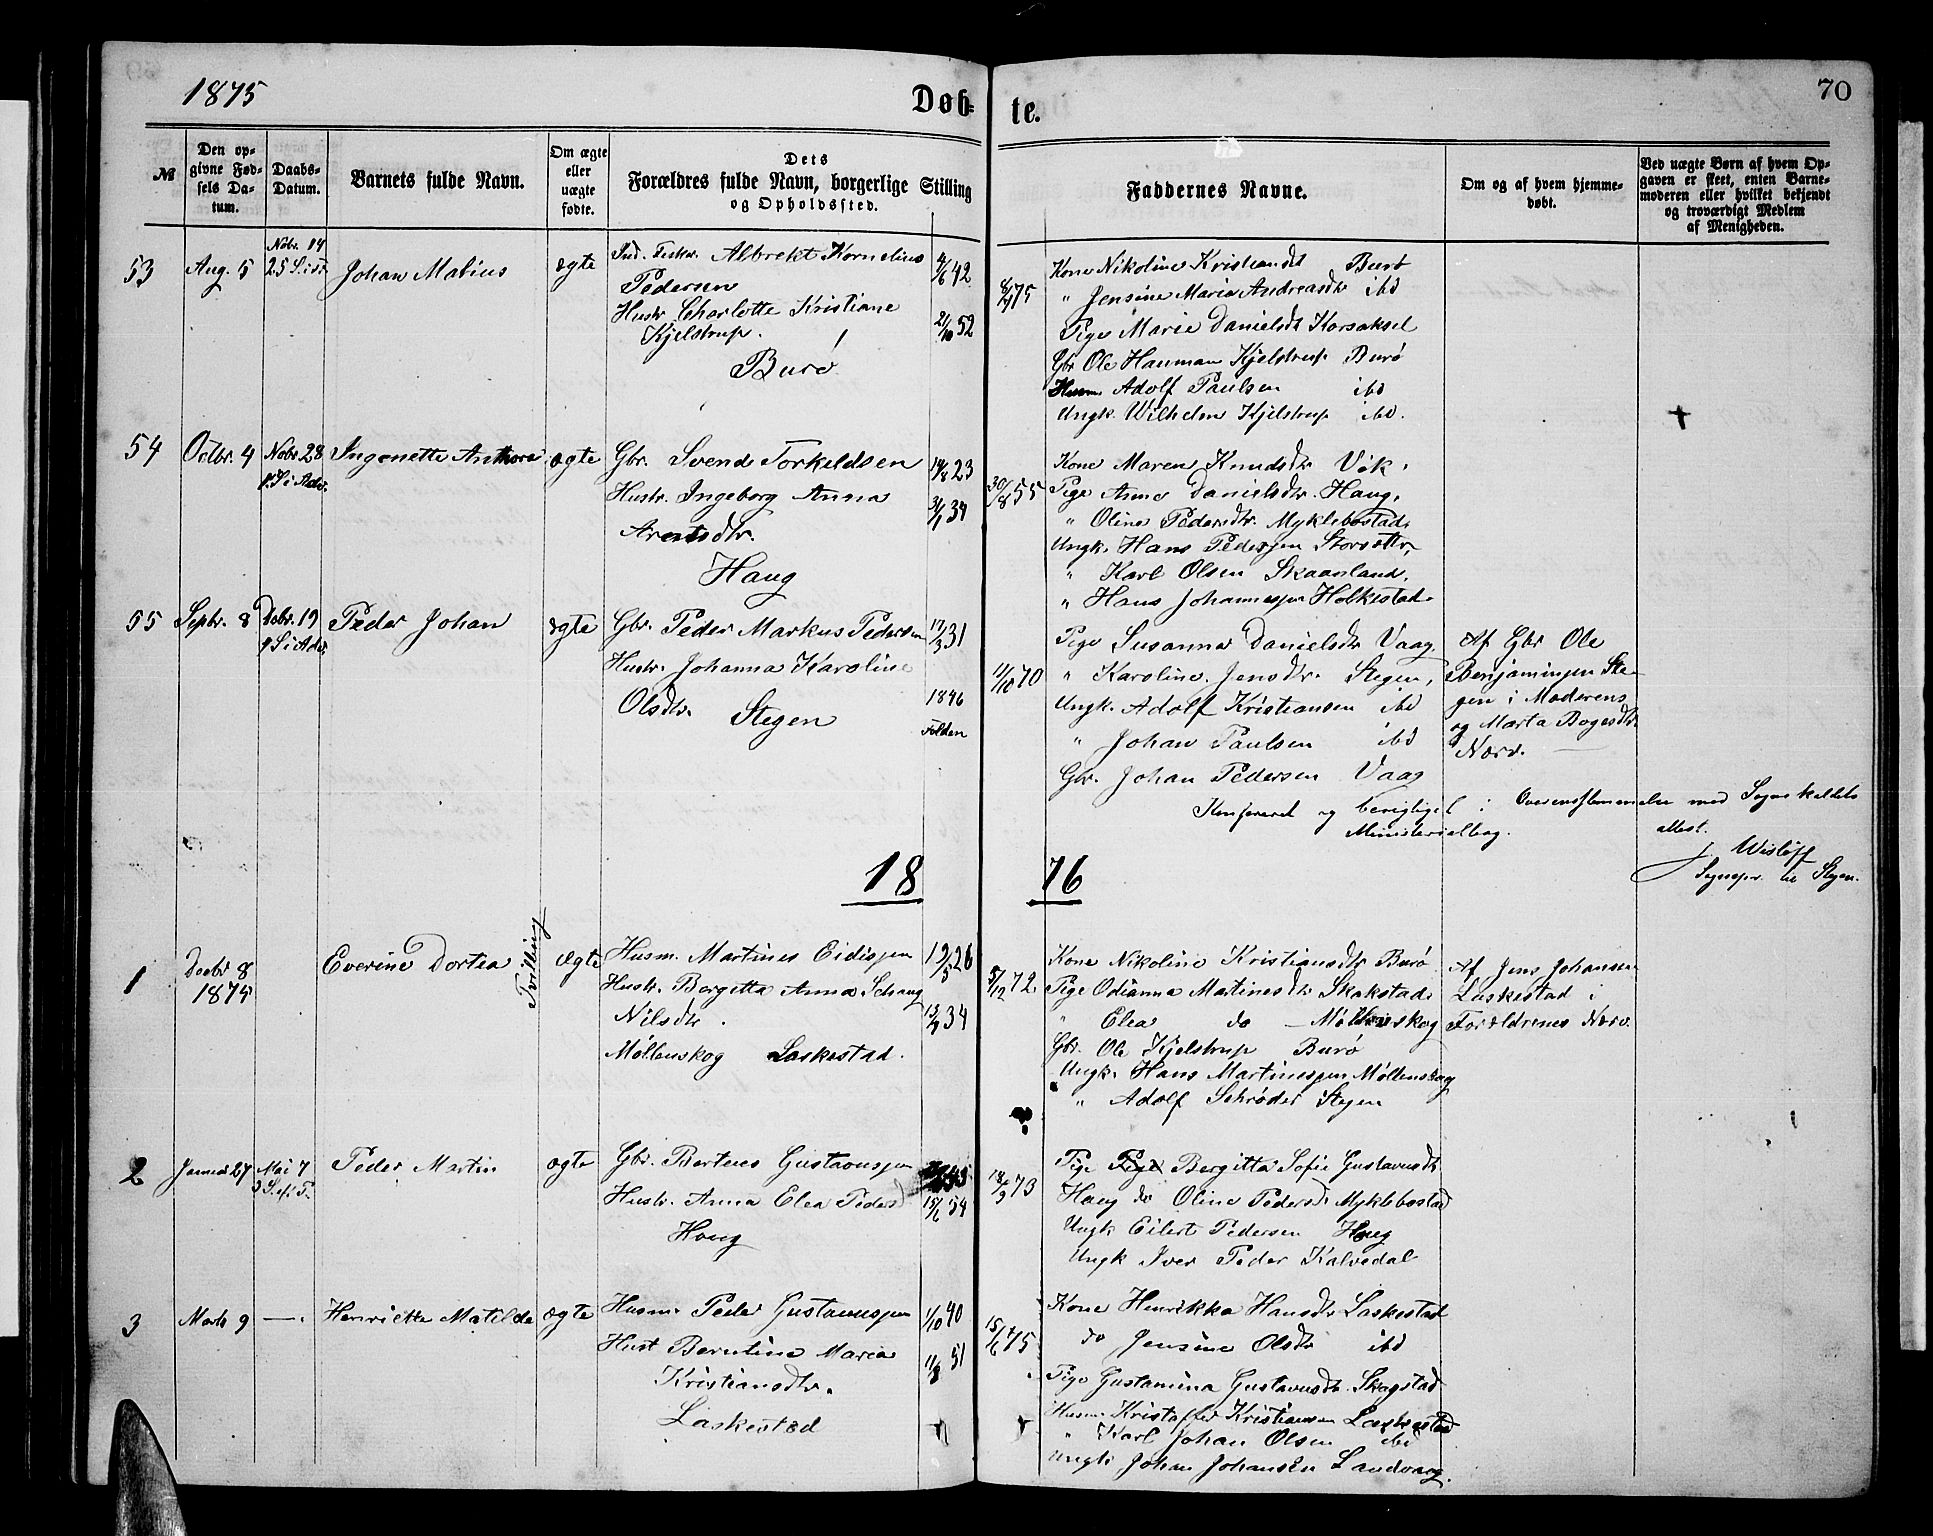 1875
Døb-
te.
70
№
Den op-
givne Fød-
sels Da-
tum.
Daabs-
Datum.
Barnets fulde Navn.
Om ægte
eller
uægte
fødte.
Dets
Forældres fulde Navn, borgerlige Stilling
og Opholdssted.
Faddernes Navne.
Om og af hvem hjemme-
døbt.
Ved uægte Børn af hvem Op-
gaven er skeet, enten Barne-
moderen eller hvilket bekjendt
og troværdigt Medlem
af Menigheden.
53 Aug. 5 Nobr. 14 Johan Mabius ægte
Albrekt Kornelius 42
Pedersen
Hustr. Charlotte Kristiane
Kjelstrup. 21/10 52
Burø
75
Kone Nikoline Kristiansdt Burø
" Jensine Maria Andreasdtr ibd
Pige Marie Danielsdt Korsaksel
Gbr Ole Hauman Kjelstrup Burø
Husm. Adolf Paulsen ibd
Ungk. Wilhelm Kjelstrup ibd.
54 Octbr. 4 Nobr. 28 Ingonette Anthore ægte
1. S. i Adv.
Gbr. Svend Torkeldsen 14/8 23
Hustr. Ingeborg Anna 3/1 34
Arentsdtr.
Haug
30/8 55
Kone Maren Knudsdtr Vik.
Pige Anne Danielsdtr. Haug,
" Oline Pedersdtr. Myklebostad,
Ungk. Hans Pedersen Storsætr,
" Karl Olsen Skaanland,
" Hans Johannesen Holkestad.
55 Sepbr. 8 Debr. 19 Peder Johan ægte
Gbr. Peder Markus Pedersen 17/3 31
Hustr. Johanna Karoline
Olsdtr. 1846
Stegen Folden
11/10 70
Pige Susanna Danielsdtr Vaag,
" Karoline Jensdtr. Stegen,
Ungk. Adolf Kristiansen ibd
" Johan Paulsen ibd
Gbr. Johan Pedersen Vaag
Af Gbr Ole
Benjaminsen Ste-
gen i Moderens
og Marta Bogesdtr
Nærv.
Konfereret og berigtiget i Overensstemmelse med Sognekaldets
Ministerialbog. attest.
Wisløff
Sognepr. til Stegen.
18 76
1 Decbr 8 Everine Dortea Tvilling ægte
1875
Husm. Martines Eidissen 19/5 26
Hustr. Bergitta Anna Schaug
Nilsdtr. 34
Møllenskog Laskestad.
5/12 72
Kone Nikoline Kristiansdtr Burø
Pige Odianna Martinesdtr Skakstad.
" Elea do Møllenskog
Gbr. Ole Kjelstrup Burø
Ungk. Hans Martinessen Møllenskog
" Adolf Schrøder Stegen
Af Jens Johansen
Laskestad i
Forældrenes Nærv.
2 Januar 27 Mai 7 Peder Martin ægte
Gbr. Berteus Gustavussen
Hustr. Anna Elea Peders 15/6 54
Haug
18/9 73
Pige Bergitta Sofie Gustavusdtr
Haug do Oline Pedersd. Myklebostad
Ungk Eilert Pedersen Haug
Ungk Iver Peder Kalvedal
3 Marts 9 —. Henriette Matilde ægte
Husm. Peder Gustavussen 1/10 40
Hust Berntine Maria 51
Kristiansdtr.
Laskestad
15/6 75
Kone Henrikka Hansdtr Laskestad
do Jensine Olsdtr ibd
Pige Gustamina Gustavusdt. Skagstad
Husm. Kristoffer Kristiansen Laskestad
" Karl Johan Olsen ibd
Ungk Johan Johansen Landvaag.